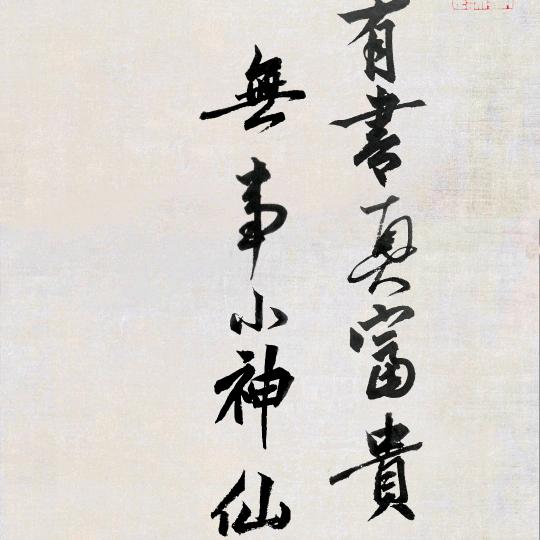 有書真富貴
無事小神仙